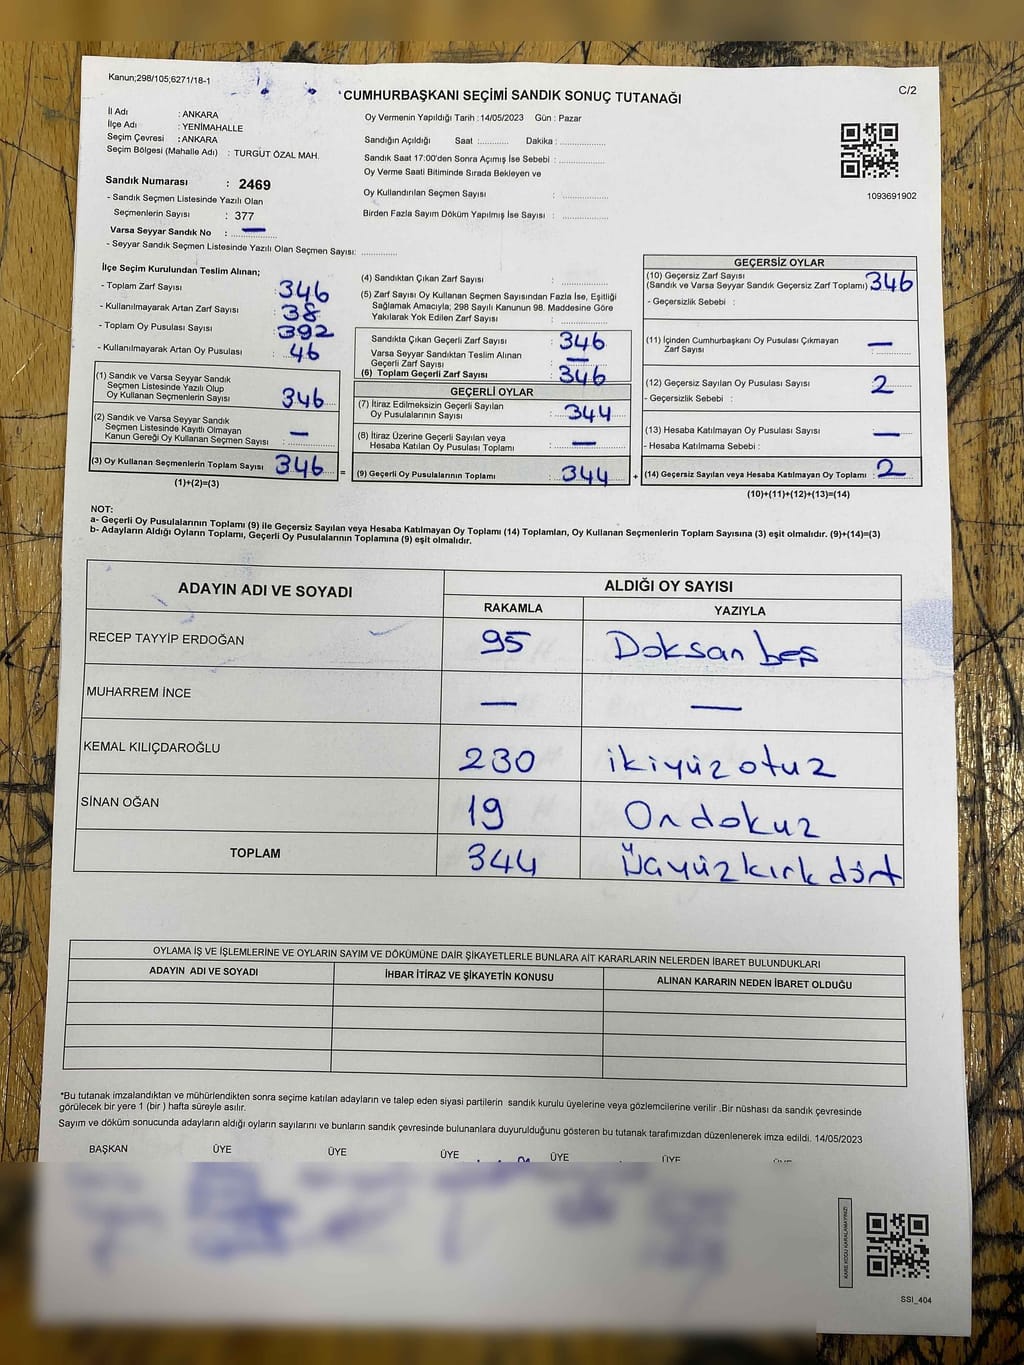 Kanun;298/105;6271/18-1
CUMHURBAŞKANI SEÇİMİ SANDIK SONUÇ TUTANAĞI
C/2
İl Adı : ANKARA
İlçe Adı : YENİMAHALLE
Seçim Çevresi : ANKARA
Seçim Bölgesi (Mahalle Adı) : TURGUT ÖZAL MAH.
Sandık Numarası : 2469
- Sandık Seçmen Listesinde Yazılı Olan
Seçmenlerin Sayısı : 377
Varsa Seyyar Sandık No : —
- Seyyar Sandık Seçmen Listesinde Yazılı Olan Seçmen Sayısı: ............
Oy Vermenin Yapıldığı Tarih : 14/05/2023 Gün : Pazar
Sandığın Açıldığı Saat :.......... Dakika : ..............
Sandık Saat 17:00'den Sonra Açımış İse Sebebi : ..............
Oy Verme Saati Bitiminde Sırada Bekleyen ve
Oy Kullandırılan Seçmen Sayısı : ..............
Birden Fazla Sayım Döküm Yapılmış İse Sayısı : ..............
1093691902
İlçe Seçim Kurulundan Teslim Alınan;
- Toplam Zarf Sayısı : 346
- Kullanılmayarak Artan Zarf Sayısı : 38
- Toplam Oy Pusulası Sayısı : 392
- Kullanılmayarak Artan Oy Pusulası : 46
(1) Sandık ve Varsa Seyyar Sandık
Seçmen Listesinde Yazılı Olup
Oy Kullanan Seçmenlerin Sayısı : 346
(2) Sandık ve Varsa Seyyar Sandık
Seçmen Listesinde Kayıtlı Olmayan
Kanun Gereği Oy Kullanan Seçmen Sayısı : —
(3) Oy Kullanan Seçmenlerin Toplam Sayısı : 346 =
(1)+(2)=(3)
(4) Sandıktan Çıkan Zarf Sayısı : ..............
(5) Zarf Sayısı Oy Kullanan Seçmen Sayısından Fazla İse, Eşitliği
Sağlamak Amacıyla; 298 Sayılı Kanunun 98. Maddesine Göre
Yakılarak Yok Edilen Zarf Sayısı : ..............
Sandıkta Çıkan Geçerli Zarf Sayısı : 346
Varsa Seyyar Sandıktan Teslim Alınan
Geçerli Zarf Sayısı : —
(6) Toplam Geçerli Zarf Sayısı : 346
GEÇERLİ OYLAR
(7) İtiraz Edilmeksizin Geçerli Sayılan
Oy Pusulalarının Sayısı : 344
(8) İtiraz Üzerine Geçerli Sayılan veya
Hesaba Katılan Oy Pusulası Toplamı : —
(9) Geçerli Oy Pusulalarının Toplamı : 344 +
GEÇERSİZ OYLAR
(10) Geçersiz Zarf Sayısı
(Sandık ve Varsa Seyyar Sandık Geçersiz Zarf Toplamı) 346
- Geçersizlik Sebebi :
(11) İçinden Cumhurbaşkanı Oy Pusulası Çıkmayan
Zarf Sayısı : —
(12) Geçersiz Sayılan Oy Pusulası Sayısı : 2
- Geçersizlik Sebebi :
(13) Hesaba Katılmayan Oy Pusulası Sayısı : —
- Hesaba Katılmama Sebebi :
(14) Geçersiz Sayılan veya Hesaba Katılmayan Oy Toplamı : 2
(10)+(11)+(12)+(13)=(14)
NOT:
a- Geçerli Oy Pusulalarının Toplamı (9) ile Geçersiz Sayılan veya Hesaba Katılmayan Oy Toplamı (14) Toplamları, Oy Kullanan Seçmenlerin Toplam Sayısına (3) eşit olmalıdır. (9)+(14)=(3)
b- Adayların Aldığı Oyların Toplamı, Geçerli Oy Pusulalarının Toplamına (9) eşit olmalıdır.
ADAYIN ADI VE SOYADI
ALDIĞI OY SAYISI
RAKAMLA YAZIYLA
RECEP TAYYİP ERDOĞAN 95 Doksan beş
MUHARREM İNCE — —
KEMAL KILIÇDAROĞLU 230 ikiyüz otuz
SİNAN OĞAN 19 Ondokuz
TOPLAM 344 Üçyüzkırkdört
OYLAMA İŞ VE İŞLEMLERİNE VE OYLARIN SAYIM VE DÖKÜMÜNE DAİR ŞİKAYETLERLE BUNLARA AİT KARARLARIN NELERDEN İBARET BULUNDUKLARI
ADAYIN ADI VE SOYADI İHBAR İTİRAZ VE ŞİKAYETİN KONUSU ALINAN KARARIN NEDEN İBARET OLDUĞU
*Bu tutanak imzalandıktan ve mühürlendikten sonra seçime katılan adayların ve talep eden siyasi partilerin sandık kurulu üyelerine veya gözlemcilerine verilir .Bir nüshası da sandık çevresinde
görülecek bir yere 1 (bir ) hafta süreyle asılır.
Sayım ve döküm sonucunda adayların aldığı oyların sayılarını ve bunların sandık çevresinde bulunanlara duyurulduğunu gösteren bu tutanak tarafımızdan düzenlenerek imza edildi. 14/05/2023
BAŞKAN ÜYE ÜYE ÜYE ÜYE ÜYE
KARE KODU KARALAMAYINIZ!
SSI_404